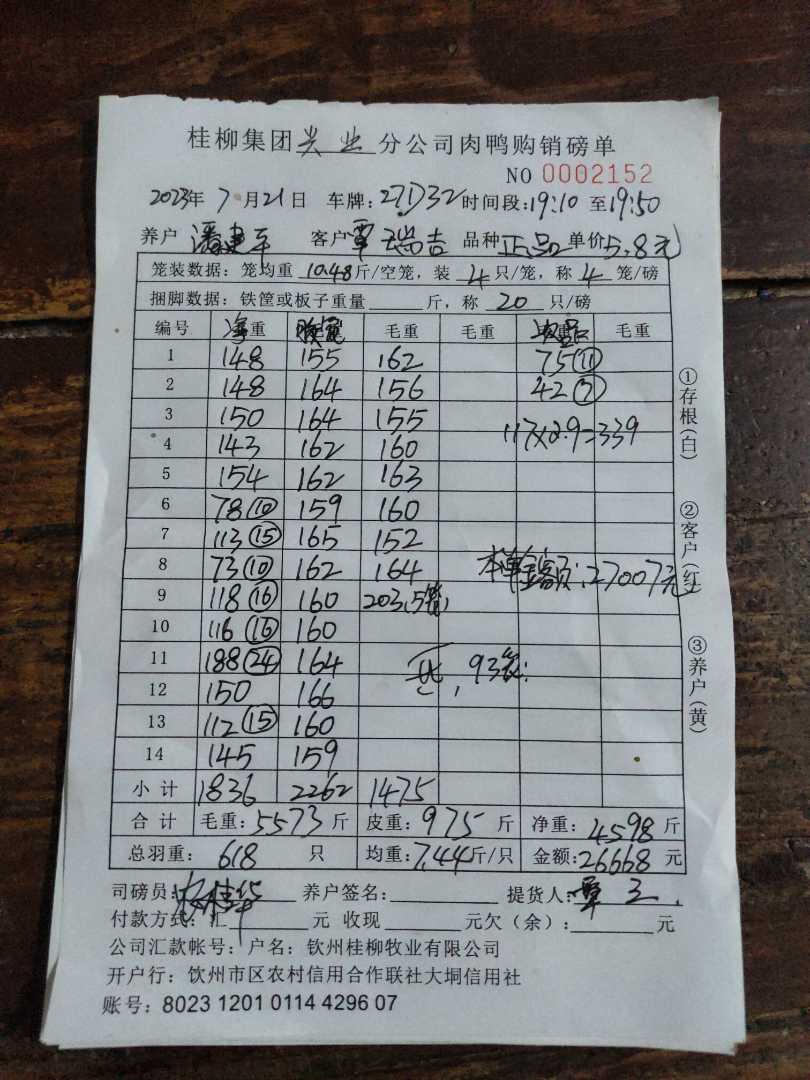 桂柳集团兴业分公司肉鸭购销磅单
NO 0002152
2023年7月21日 车牌:271732 时间段:19:10至19:50
养户潘建平 客户覃瑞吉 品种正品 单价5.8元
笼装数据:笼均重10.48斤/空笼,装4只/笼,称4笼/磅
捆脚数据:铁筐或板子重量 斤,称20只/磅
编号 净重 毛重 毛重 毛重
1 148 155 162 75⑪
2 148 164 156 42⑦
3 150 164 155
4 143 162 160 117×2.9=339
5 154 162 163
6 78⑩ 159 160
7 113⑮ 165 152
8 73⑩ 162 164 本单金额:27007元
9 118⑯ 160 203,5笼,
10 116⑯ 160
11 188㉔ 164 共,93笼;
12 150 166
13 112⑮ 160
14 145 159
小计 1836 2262 1475
合计 毛重:5573斤 皮重:975斤 净重:4598斤
总羽重:618只 均重:7.44斤/只 金额:26668元
司磅员: 养户签名: 提货人:覃
付款方式:汇 元 收现 元欠(余): 元
公司汇款帐号:户名:钦州桂柳牧业有限公司
开户行:饮州市区农村信用合作联社大垌信用社
账号:8023 1201 0114 4296 07
①存根(白)
②客户(红)
③养户(黄)